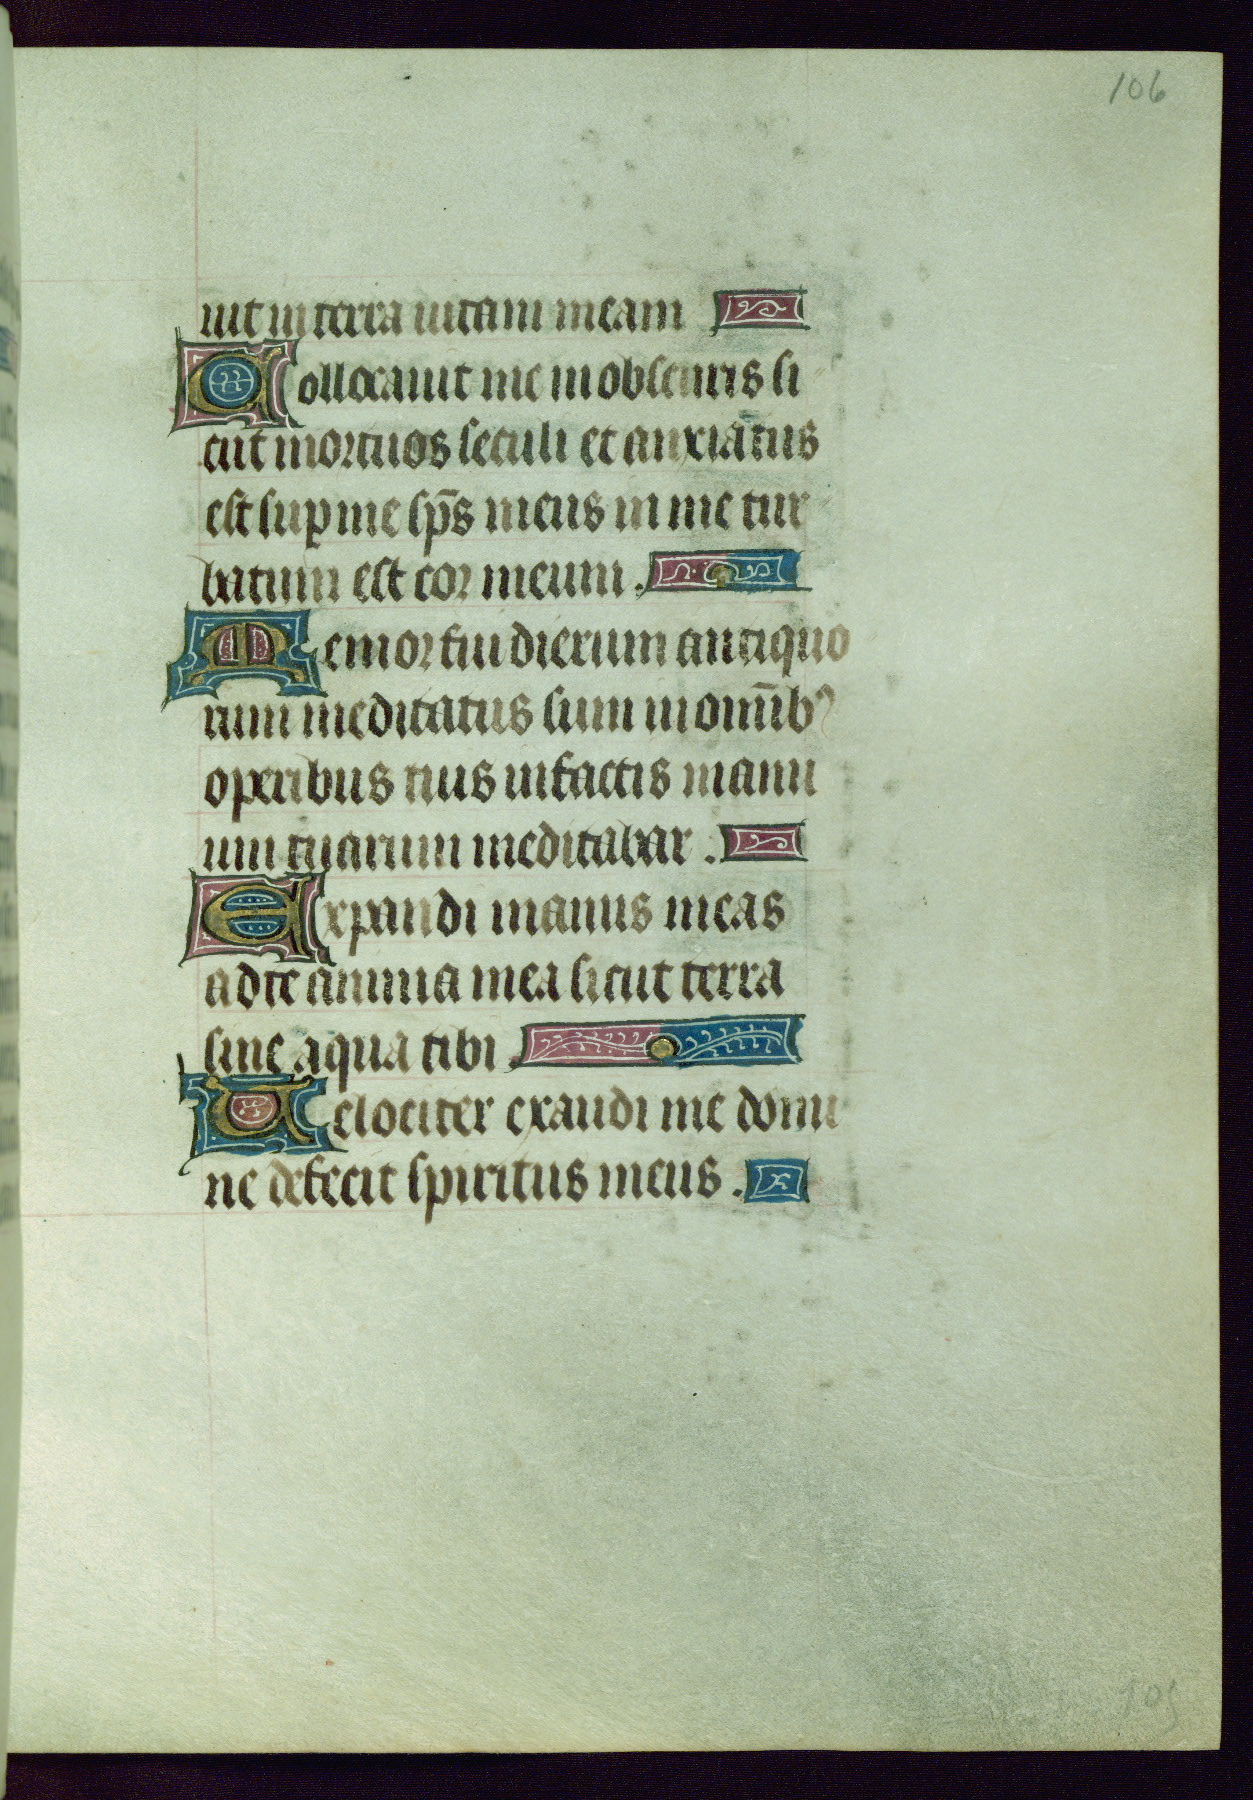 106
uit in terra uitam meam
Collocauit me in obscuris si
cut mortuos seculi et anxiatus
est sup me sp̄s meus in me tur
batum est cor meum.
Memor fui dierum antiquo
rum meditatus sum in om̄ibꝰ
operibus tuis in factis manu
um tuarum meditabar.
Expandi manus meas
ad te anima mea sicut terra
sine aqua tibi.
Uelociter exaudi me domi
ne defecit spiritus meus.
105